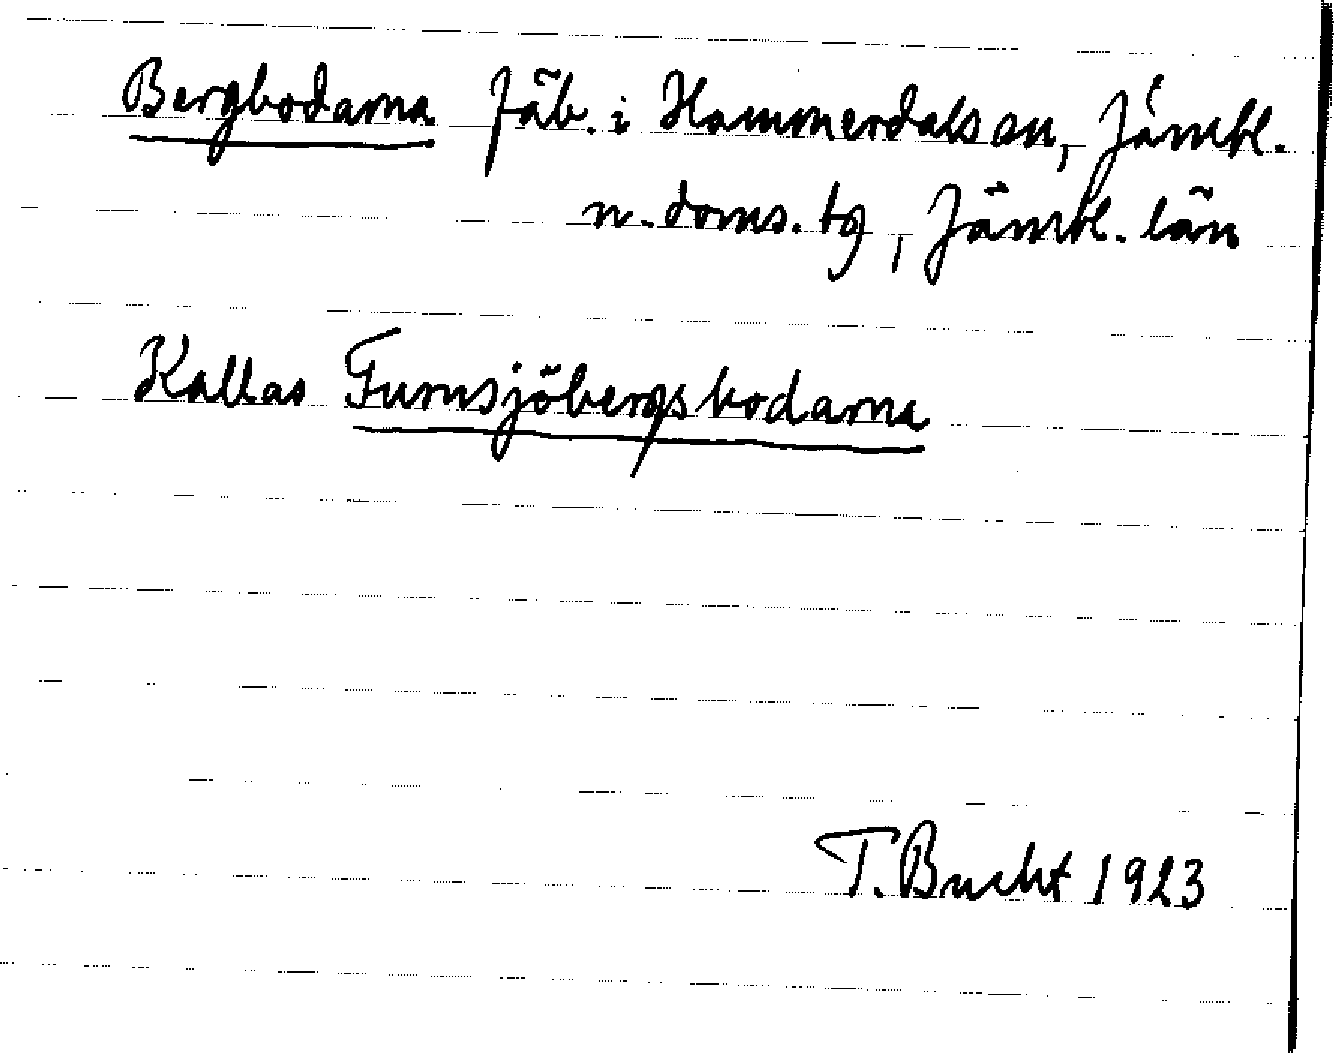 Bergbodarna fäb. i Hammerdals sn, Jämtl.
n. doms. tg, Jämtl. län
Kallas Furusjöbergsbodarna
T. Bucht 1923